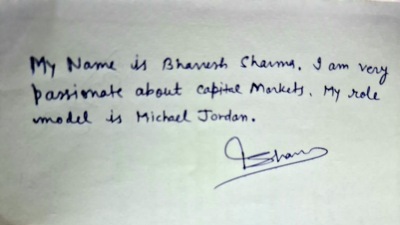 My Name is Bhavesh Sharma. I am very
passionate about capital Markets. My role
model is Michael Jordan.